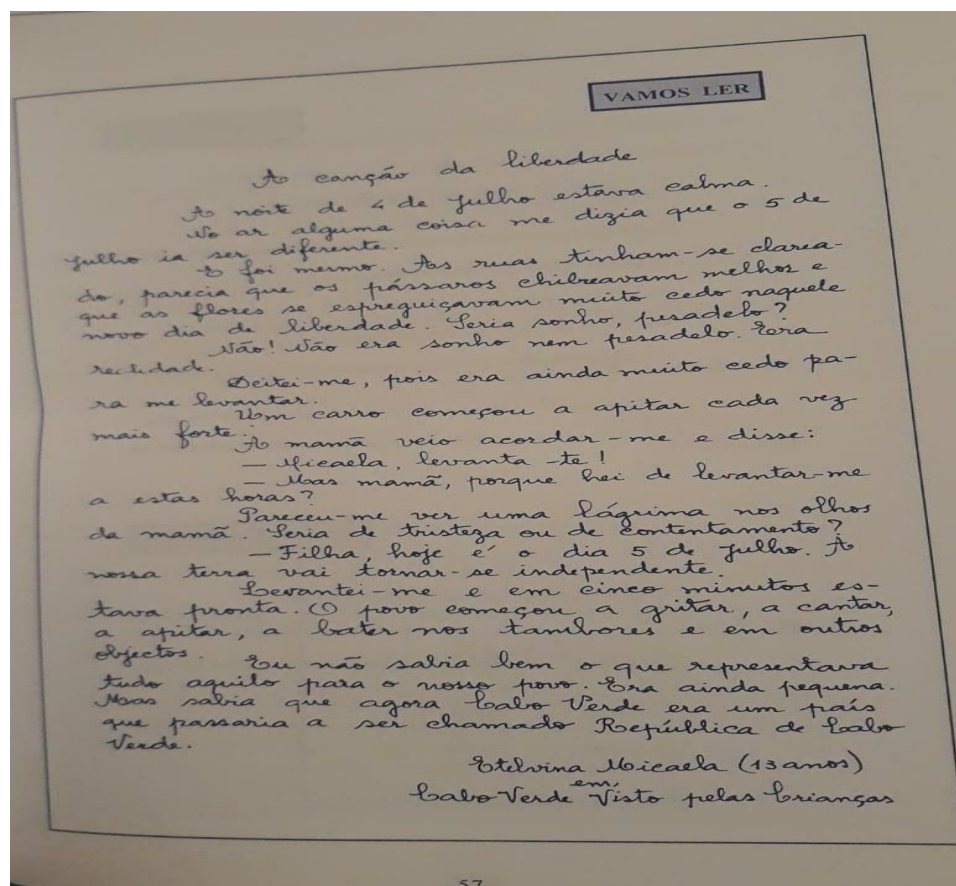 VAMOS LER
A canção da liberdade
A noite de 4 de Julho estava calma.
No ar alguma coisa me dizia que o 5 de
Julho ia ser diferente.
E foi mesmo. As ruas tinham-se clarea-
do, parecia que os pássaros chilreavam melhor e
que as flores se espreguiçavam muito cedo naquele
novo dia de liberdade. Seria sonho, pesadelo?
Não! Não era sonho nem pesadelo. Era
realidade.
Deitei-me, pois era ainda muito cedo pa-
ra me levantar.
Um carro começou a apitar cada vez
mais forte.
A mamã veio acordar-me e disse:
— Micaela, levanta-te!
— Mas mamã, porque hei de levantar-me
a estas horas?
Pareceu-me ver uma lágrima nos olhos
da mamã. Seria de tristeza ou de contentamento?
— Filha, hoje é o dia 5 de Julho. A
nossa terra vai tornar-se independente.
Levantei-me e em cinco minutos es-
tava pronta. O povo começou a gritar, a cantar,
a apitar, a bater nos tambores e em outros
objectos.
Eu não sabia bem o que representava
tudo aquilo para o nosso povo. Era ainda pequena.
Mas sabia que agora Cabo Verde era um país
que passaria a ser chamado República de Cabo
Verde.
Etelvina Micaela (13 anos)
em,
Cabo Verde Visto pelas Crianças
57